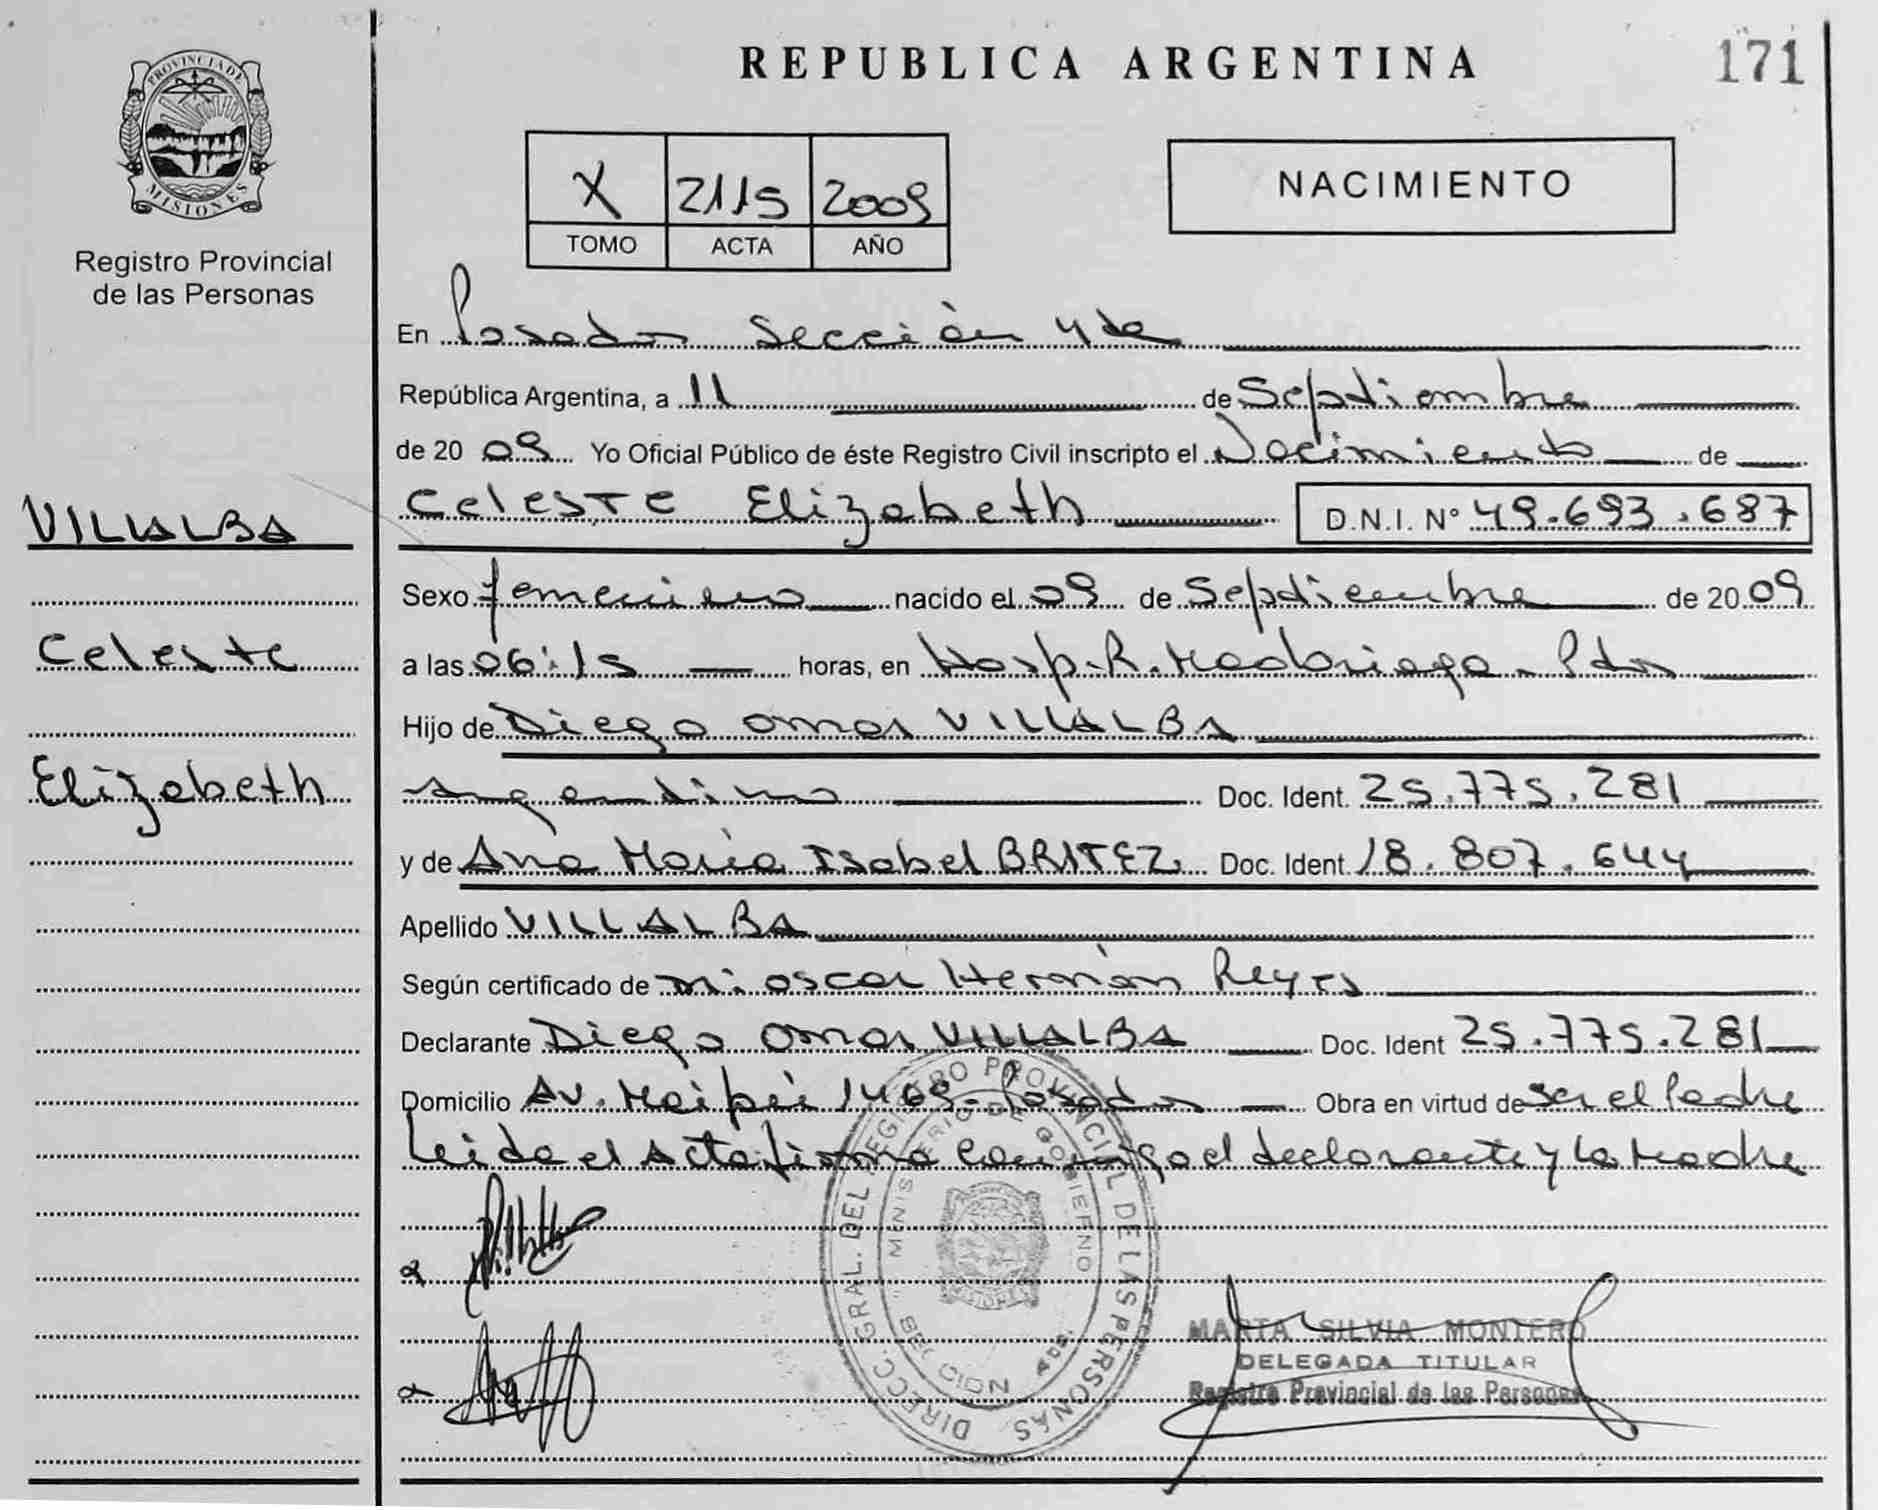 REPUBLICA ARGENTINA
171
PROVINCIA DE
MISIONES
Registro Provincial
de las Personas
X 2115 2009
TOMO ACTA AÑO
NACIMIENTO
En Posadas Sección 4ta
República Argentina, a 11 de Septiembre
de 20 09 Yo Oficial Público de éste Registro Civil inscripto el Nacimiento de
Celeste Elizabeth D.N.I. N° 49.693.687
VILLALBA
Celeste
Elizabeth
Sexo femenino nacido el 09 de Septiembre de 20 09
a las 06:15 horas, en Hosp. R. Madariaga - Pdas
Hijo de Diego Omar VILLALBA
Argentino Doc. Ident. 25.775.281
y de Ana María Isabel BRITEZ Doc. Ident 18.807.644
Apellido VILLALBA
Según certificado de Oscar Hernán Reyes
Declarante Diego Omar VILLALBA Doc. Ident 25.775.281
Domicilio Av. Maipú 1469 - Posadas Obra en virtud de ser el Padre
Leida el Acta firma conmigo el declarante y la Madre
DIRECC. GRAL. DEL REGISTRO PROVINCIAL DE LAS PERSONAS
MINISTERIO DE GOBIERNO
SECCION
MARTA SILVIA MONTERO
DELEGADA TITULAR
Registro Provincial de las Personas